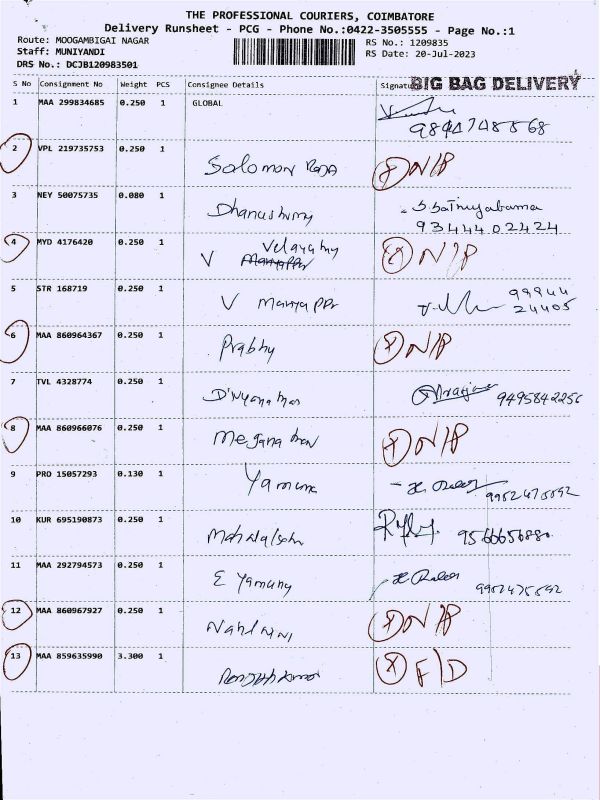 THE PROFESSIONAL COURIERS, COIMBATORE
Delivery Runsheet - PCG - Phone No.:0422-3505555 - Page No.:1
Route: MOOGAMBIGAI NAGAR RS No.: 1209835
Staff: MUNIYANDI RS Date: 20-Jul-2023
DRS No.: DCJB120983501
S No Consignment No Weight PCS Consignee Details Signature BIG BAG DELIVERY
1 MAA 299834685 0.250 1 GLOBAL
2 VPL 219735753 0.250 1 Solomon Raja X N/P
3 NEY 50075735 0.080 1 S. Sathyabama
9344402424
4 MYD 4176420 0.250 1 V X N/P
5 STR 168719 0.250 1 V 99944
24405
6 MAA 860964367 0.250 1 Prabhy X N/P
7 TVL 4328774 0.250 1 9495842256
8 MAA 860966076 0.250 1 X N/P
9 PRO 15057293 0.130 1 Yamuna
10 KUR 695190873 0.250 1
11 MAA 292794573 0.250 1 E Yamuny
12 MAA 860967927 0.250 1 X N/P
13 MAA 859635990 3.300 1 X F/D